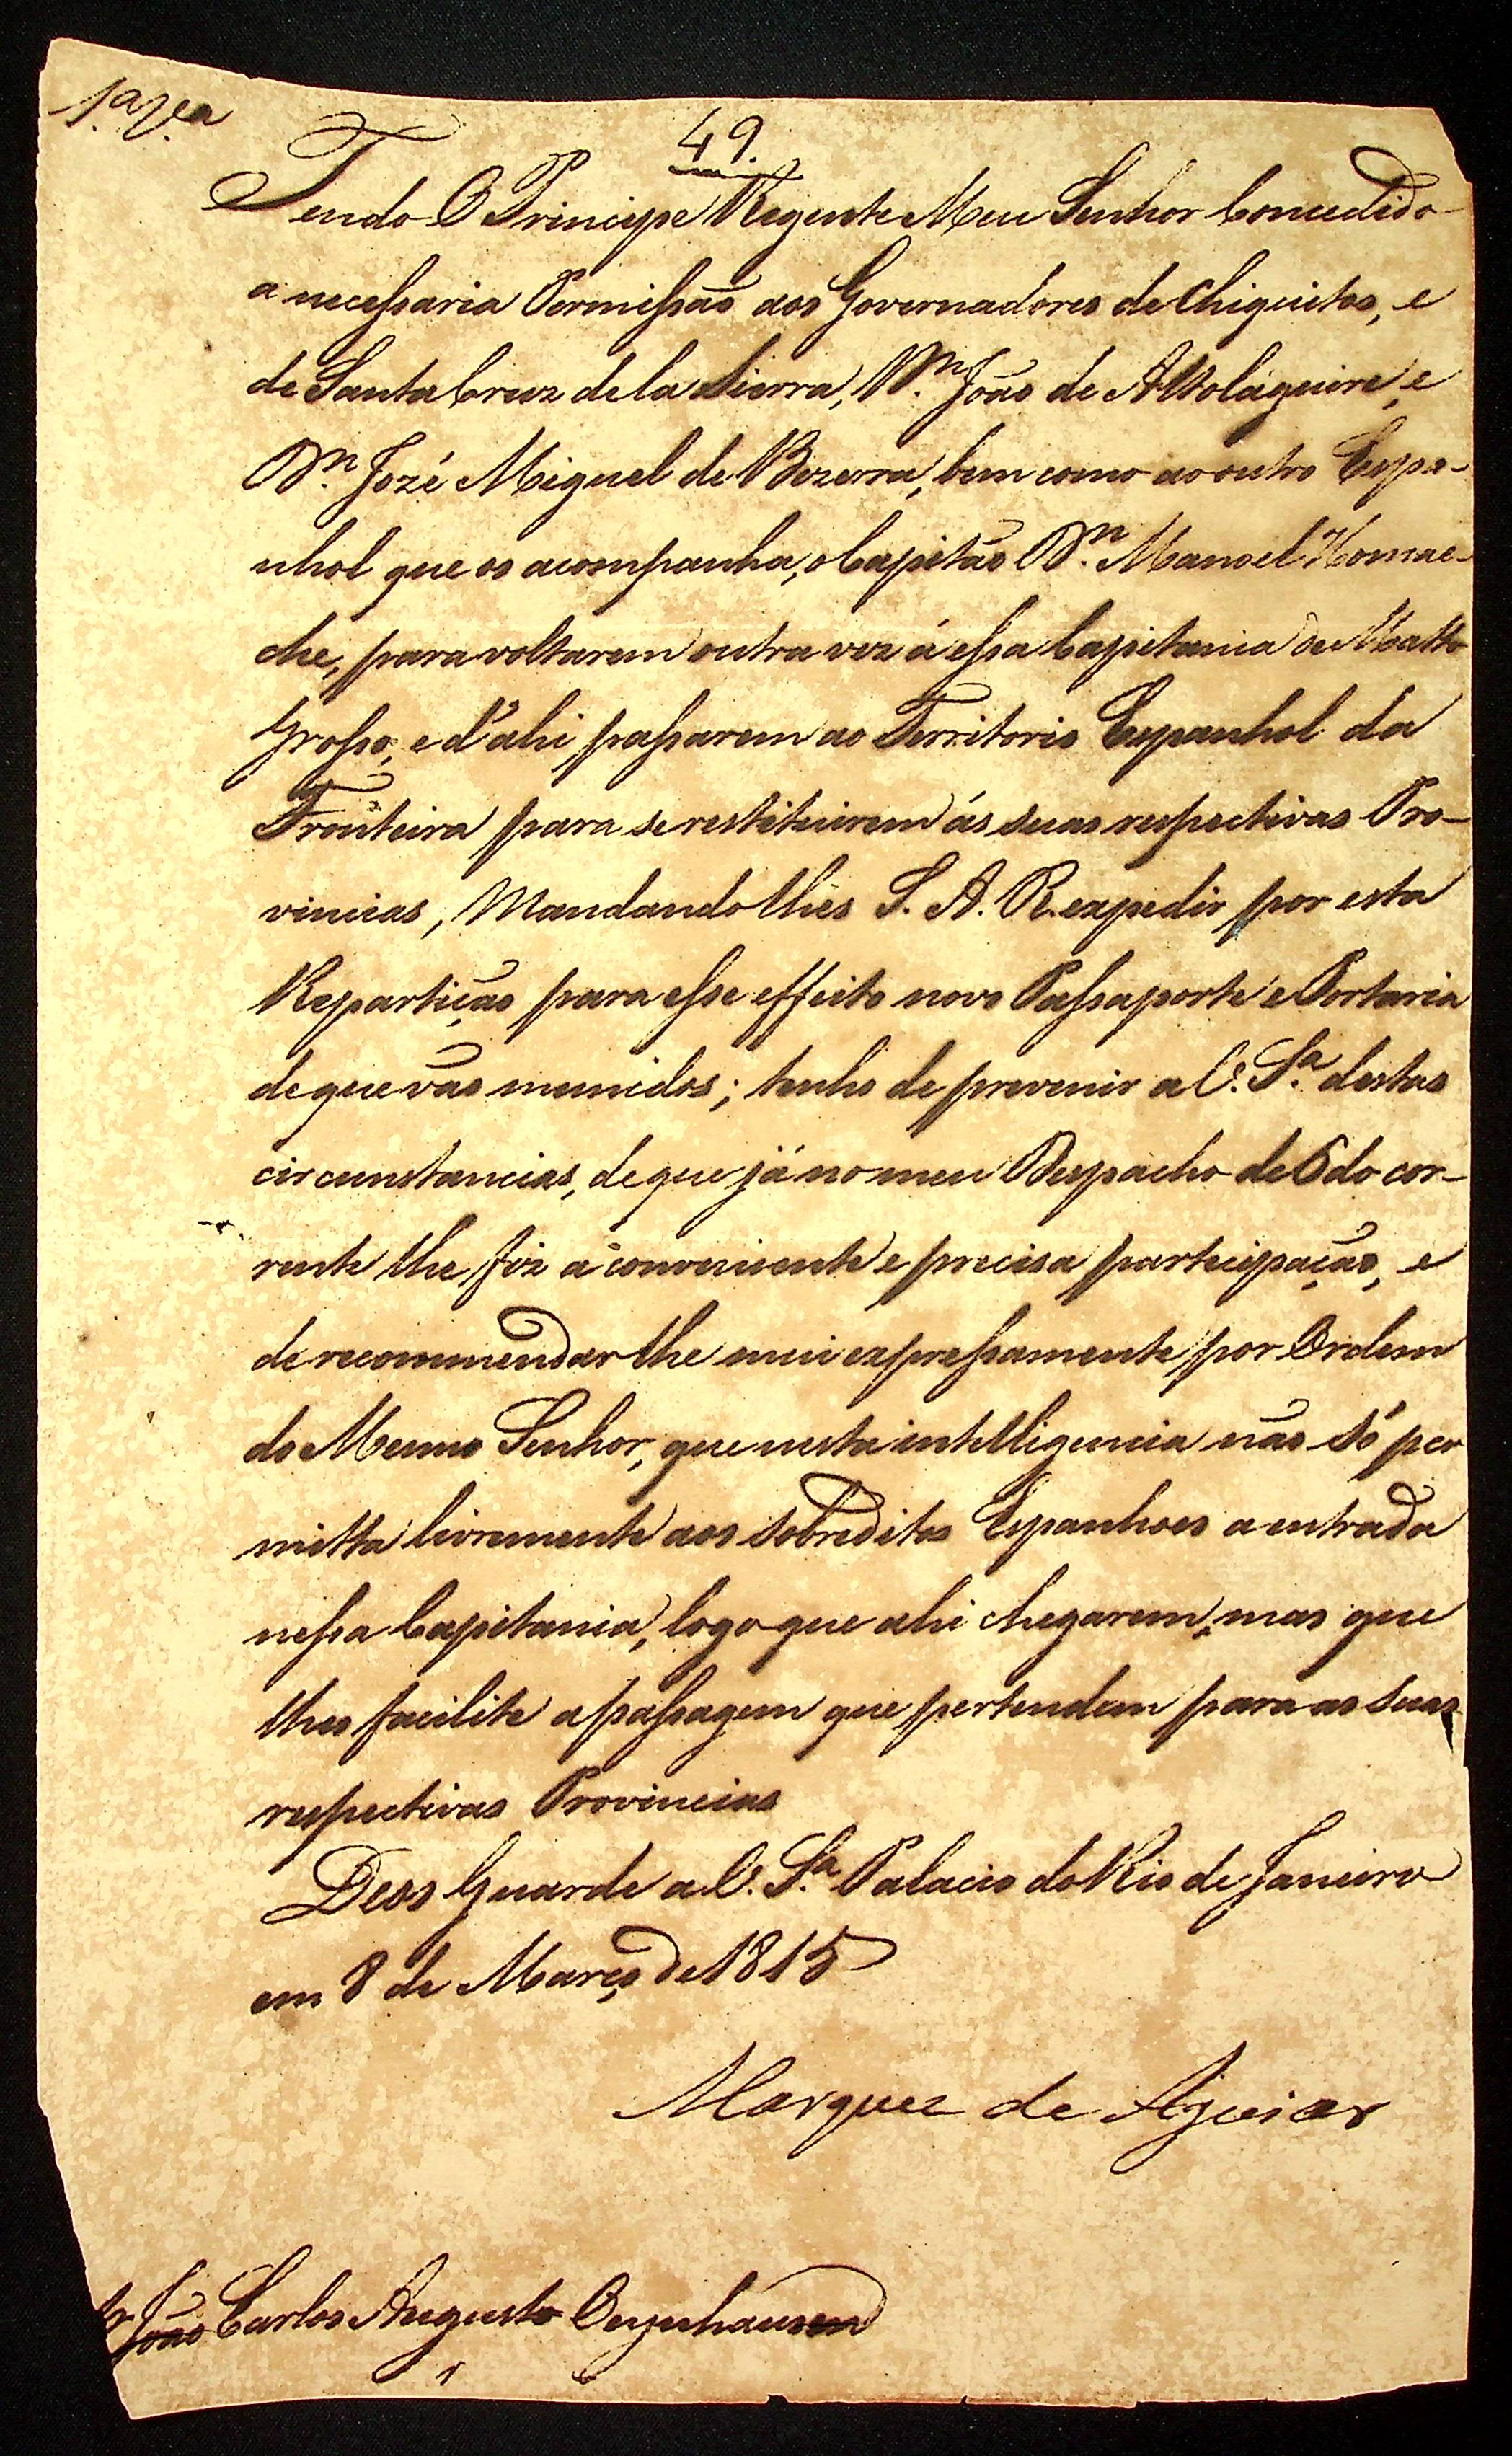 1.ª V.ea
49.
Tendo O Principe Regente Meu Senhor Concedido
a necessaria Permissão aos Governadores de Chiquitos, e
de Santa Cruz de la Sierra, D.n João de Altoláguire, e
D.n Jozé Miguel de Bezerra, bem como ao outro Espa-
nhol que os acompanha, o Capitão D.n Manoel
che, para voltarem outra vez á essa Capitania de Matto
Grosso, e d'ahi passarem ao Territorio Espanhol da
Fronteira para se restituirem ás suas respectivas Pro-
vincias, Mandandolhes S. A. R. expedir por esta
Repartição para esse effeito novo Passaporte e Portaria
de que vão munidos; tenho de prevenir a V. S.ª destas
circunstancias, de que já no meu Despacho de 6 do cor-
rente lhe fiz a conveniente e precisa participação, e
de recommendarlhe mui expressamente por Ordem
do Mesmo Senhor, que nesta intelligencia não só per
mitta livremente aos sobreditos Espanhoes a entrada
nessa Capitania, logo que ahi chegarem, mas que
lhes facilite a passagem que pertendem para as suas
respectivas Provincias
Deos Guarde a V. S.ª Palacio do Rio de Janeiro
em 8 de Março de 1815
Marquez de Aguiar
João Carlos Augusto Oeynhausen